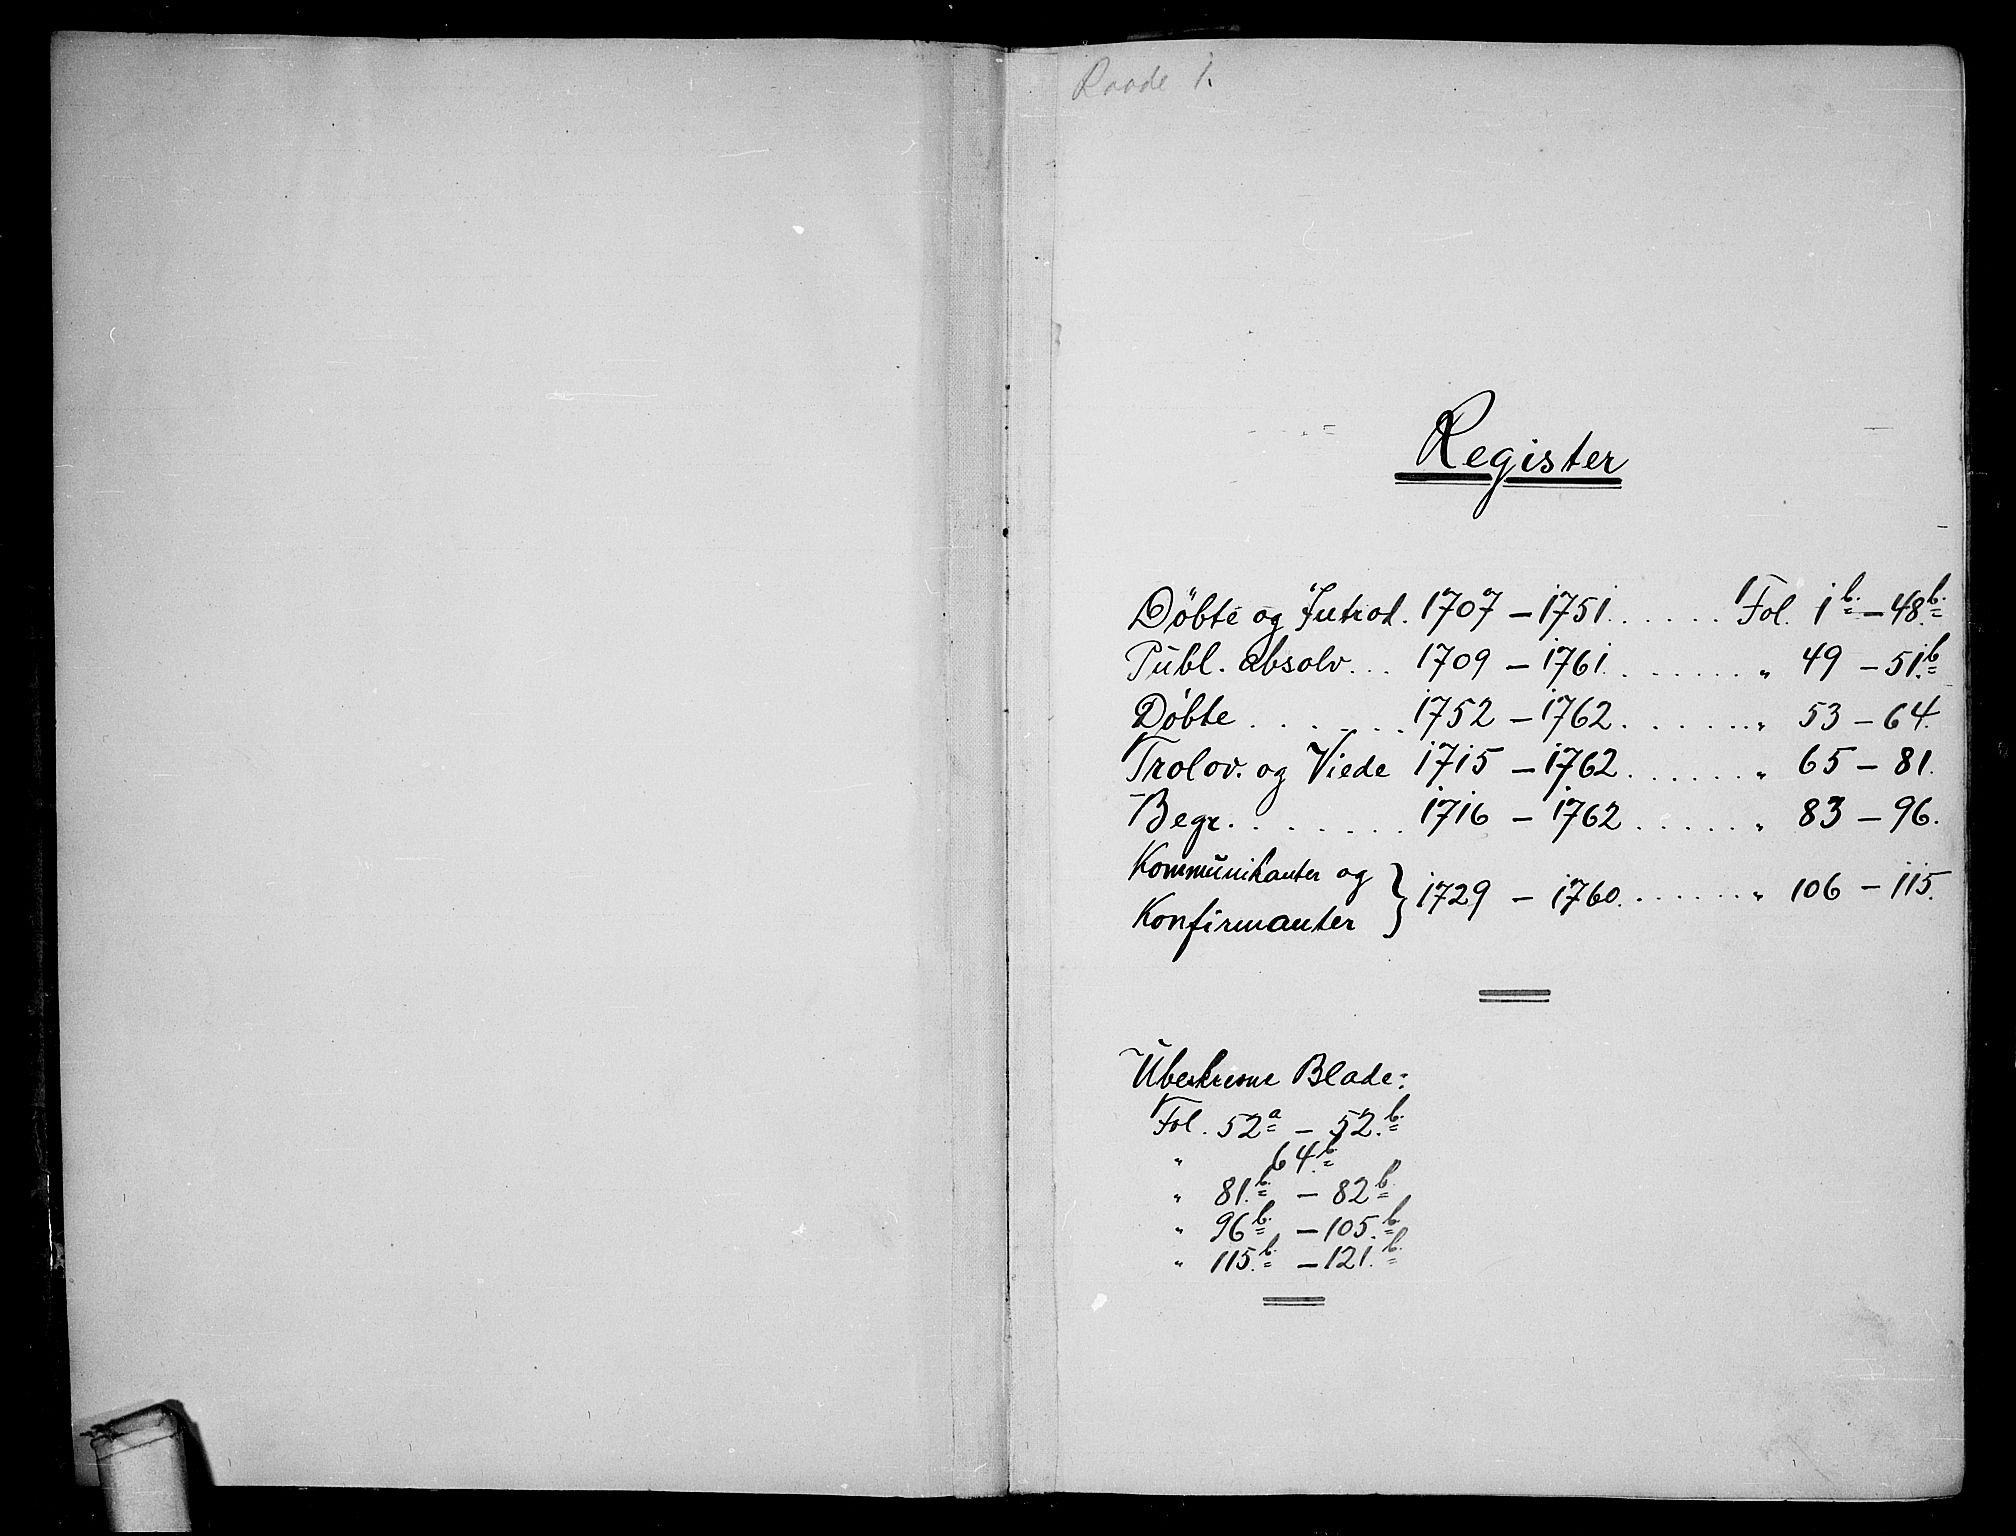 Raade 1.
Register
Döbte og Introd. 1707 – 1751 . . . . . . Fol. 1b. – 48.b.
Publ. absolv. . . 1709 – 1761 . . . . . . " 49 – 51.b
Döbte . . . . . . 1752 – 1762 . . . . . . " 53 – 64.
Trolov. og Viede 1715 – 1762 . . . . . . " 65 – 81.
Begr. . . . . . . 1716 – 1762 . . . . . . " 83 – 96.
Kommunikanter og
Konfirmanter } 1729 – 1760 . . . . . . " 106 – 115.
Ubeskrevne Blade:
Fol. 52a – 52.b.
" 64.b.
" 81.b. – 82b.
" 96b. – 105.b.
" 115.b. – 121.b.